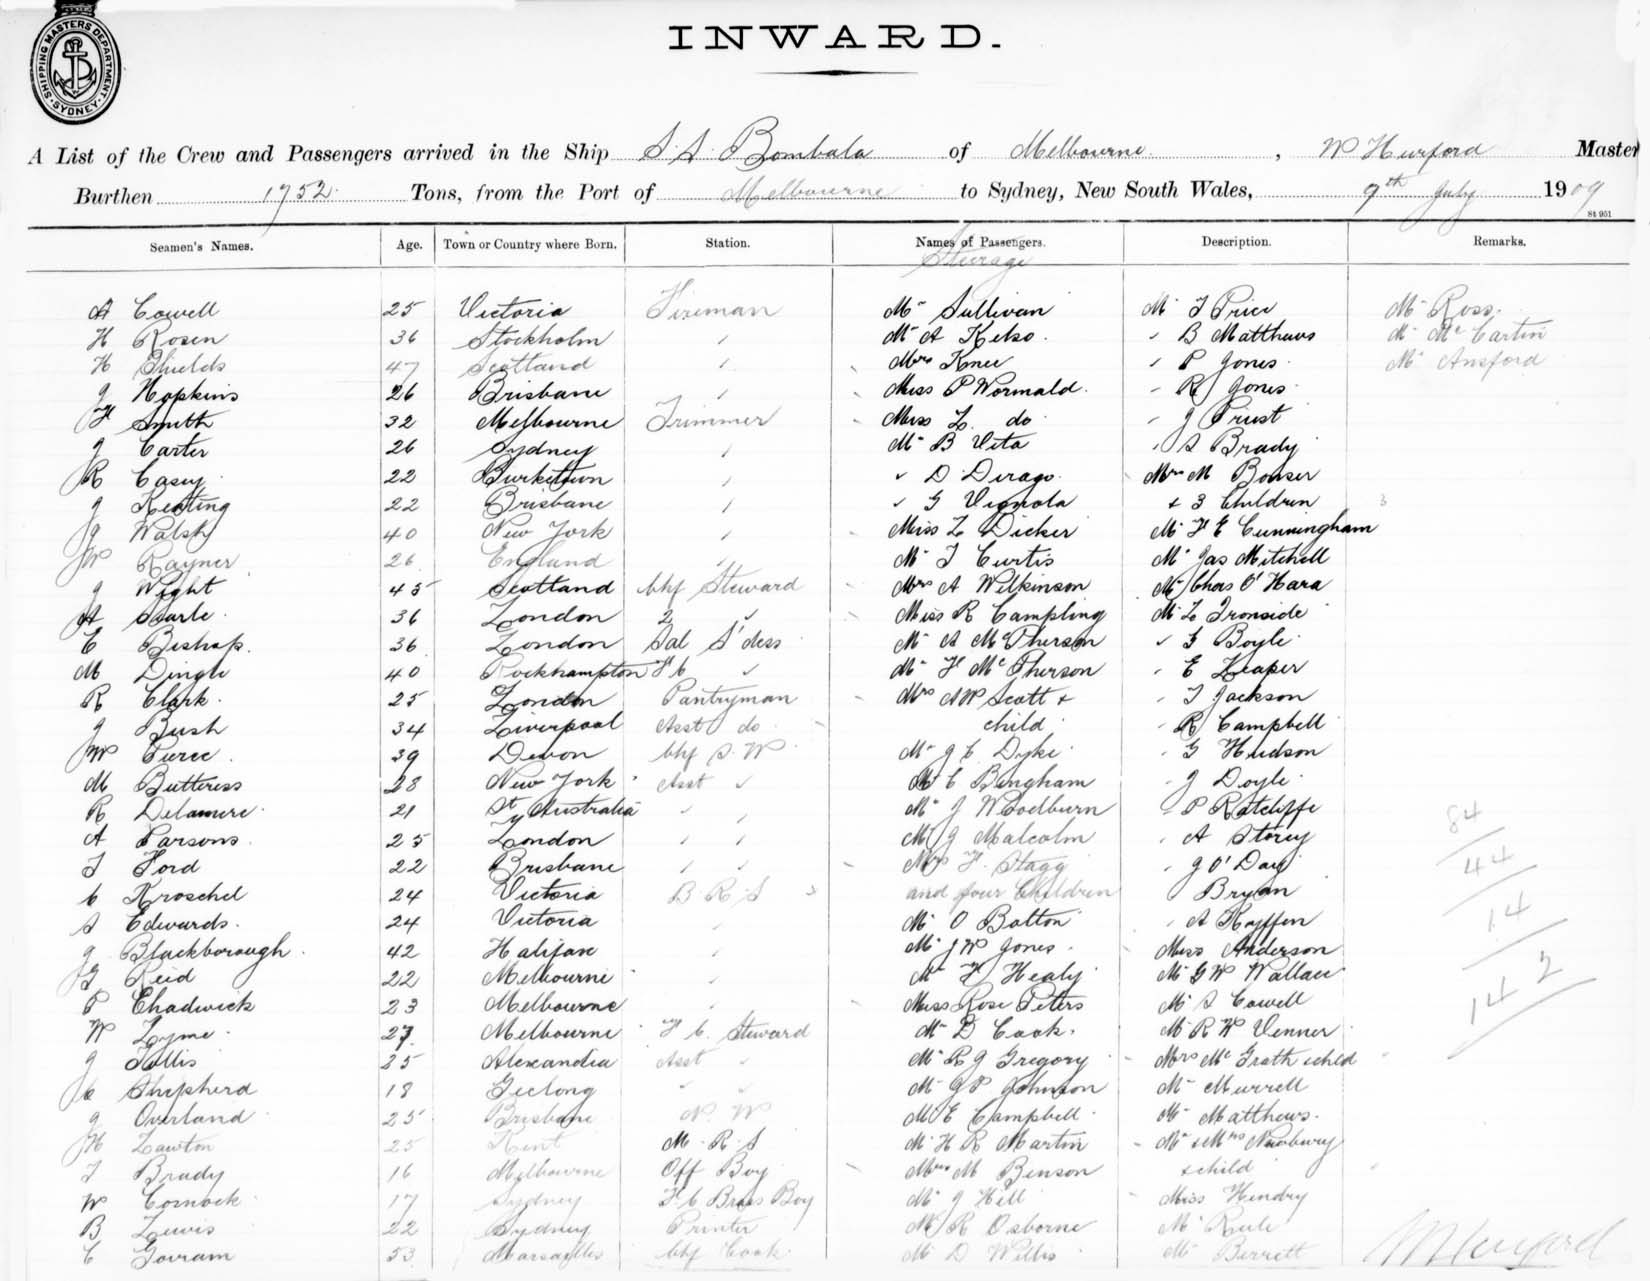 SHIPPING MASTERS DEPARTMENT · SYDNEY ·
INWARD.
A List of the Crew and Passengers arrived in the Ship S.S. Bombala of Melbourne, W Hurford Master
Burthen 1752 Tons, from the Port of Melbourne to Sydney, New South Wales, 9th July 1909
St 951
Seamen's Names. Age. Town or Country where Born. Station. Names of Passengers. Description. Remarks.
Steerage
A Cowell 25 Victoria Fireman Mr Sullivan Mr T Price Mr Ross.
H Rosen 36 Stockholm " Mr A Kelso. " B Matthews Mr McCartin
H Shields 47 Scotland " Mrs Knee " P Jones Mr Ansford
J Hopkins 26 Brisbane " Miss P Wormald. " R Jones
F Smith 32 Melbourne Trimmer Miss L. do " J Trust
J Carter 26 Sydney " Mr B Vita " A Brady
R Casey 22 Burketown " " D Dirago. Mrs M Bonser
J Keating 22 Brisbane " " G Vignola + 3 Children 3
J Walsh 40 New York " Miss L Dicker Mr F E Cunningham
W Rayner 26 England " Mr T Curtis Mr Jas Mitchell
J Wight 45 Scotland Chf Steward Mrs A Wilkinson Mr Chas O'Hara
A Searle 36 London 2 " Miss R Campling Mr L Ironside
E Bishop. 36 London Sal S'dess Mr A McPherson " G Boyle
M Dingle 40 Rockhampton F C " Mr F McPherson " E Leaper
R Clark. 25 London Pantryman Mrs A W Scott + " T Jackson
J Bush 34 Liverpool Asst do child " R Campbell
W Pierce 39 Devon Chf S. W Mr J C Dyke " G Hudson
M Buttress 28 New York Asst " Mr C Bingham " J Doyle
R Delamere 21 Sth Australia " " Mr J Woodburn " P Ratcliffe
A Parsons 25 London " " Mr J Malcolm " A Storey
T Ford 22 Brisbane " " Mrs F. Stagg " J O'Day
C Kroschel 24 Victoria B R S and four Children Bryan
A Edwards. 24 Victoria " Mr O Bolton " A Koffen
J Blackborough. 42 Halifax " Mr J W Jones. Miss Anderson
G Reid 22 Melbourne " Mr F Healy Mr G W Wallace
P Chadwick 23 Melbourne " Miss Rose Peters Mr S Cowell
W Lyme 27 Melbourne F C Steward Mr D Cook. Mr R W Venner
J Tollis 25 Alexandia Asst " Mr R J Gregory Mrs McGrath + child
C Shepherd 18 Geelong " " Mr G P Johnson Mr Murrell
J Overland 25 Brisbane N. W Mr E Campbell Mr Matthews.
H Lawton 25 Kent M. R. S Mr H R Martin Mr + Mrs Newbury
T Brady 16 Melbourne Off Boy Mrs M Benson + child
W Cornock 17 Sydney F C Brass Boy Mr J Hill Miss Hendry
B Lewis 22 Sydney Printer Mr R Osborne Mr Rule
C Govram 53 Marsailles Chf Cook Mr D Willis Mr Berrett
84
44
14
142
W Hurford